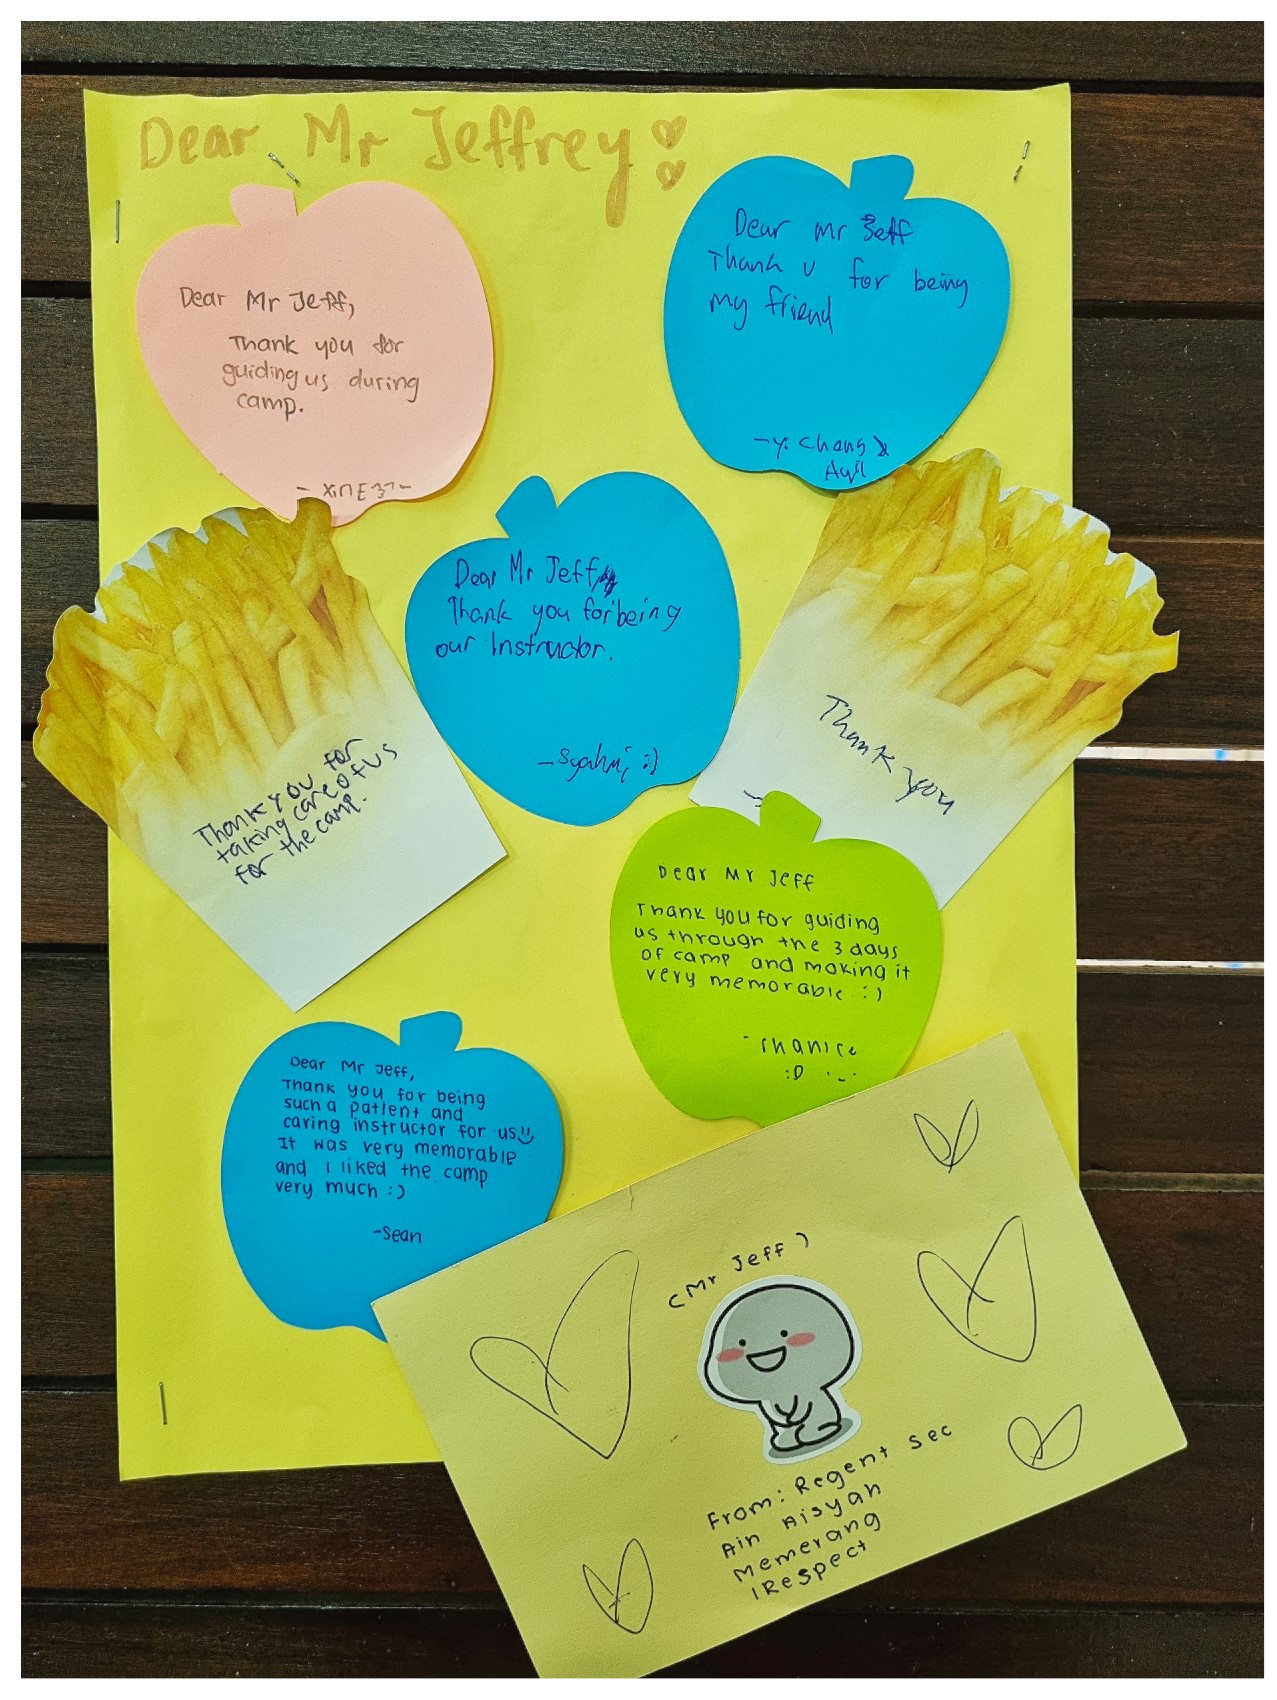 Dear Mr Jeffrey
Dear Mr Jeff,
Thank you for
guiding us during
camp.
Dear Mr Jeff
Thank u for being
my friend
Dear Mr Jeff
Thank you for being
our Instructor.
- Syahmi :)
Thank you for
taking care of us
for the camp.
Thank you
Dear Mr Jeff
Thank you for guiding
us through the 3 days
of camp and making it
very memorable :)
- Chanice
:D
Dear Mr Jeff,
Thank you for being
such a patient and
caring instructor for us
It was very memorable
and I liked the camp
very much :)
-Sean
(Mr Jeff)
From: Regent Sec
Ain Aisyah
Memerang
1Respect